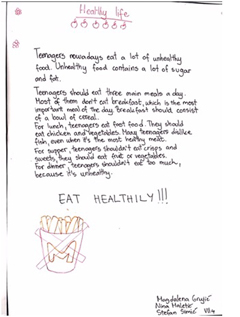 Healthy life
Teenagers nowadays eat a lot of unhealthy
food. Unhealthy food contains a lot of sugar
and fat.
Teenagers should eat three main meals a day.
Most of them don't eat breakfast, which is the most
important meal of the day. Breakfast should consist
of a bowl of cereal.
For lunch, teenagers eat fast food. They should
eat chicken and vegetables. Many teenagers dislike
fish, even when it's the most healthy meat.
For supper, teenagers shouldn't eat crisps and
sweets, they should eat fruit or vegetables.
For dinner, teenagers shouldn't eat too much,
because it's unhealthy.
EAT HEALTHILY!!!
M
Magdalena Grujić
Nina Maletić
Stefan Simić VII4